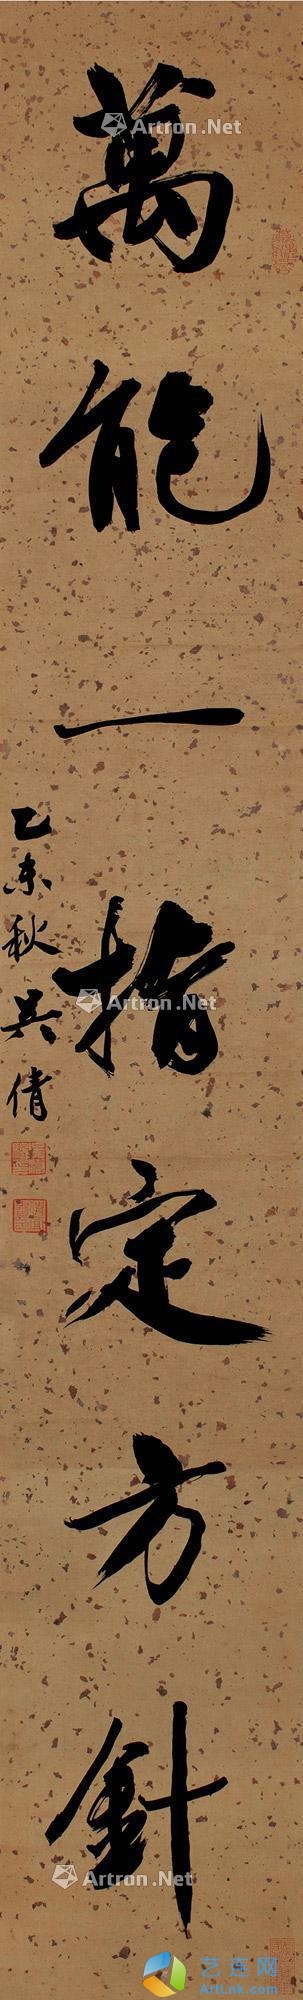 萬能一指定方針
乙未秋吳倩
Artron.Net
Artron.Net
Artron.Net
艺连网
ArtLink.com